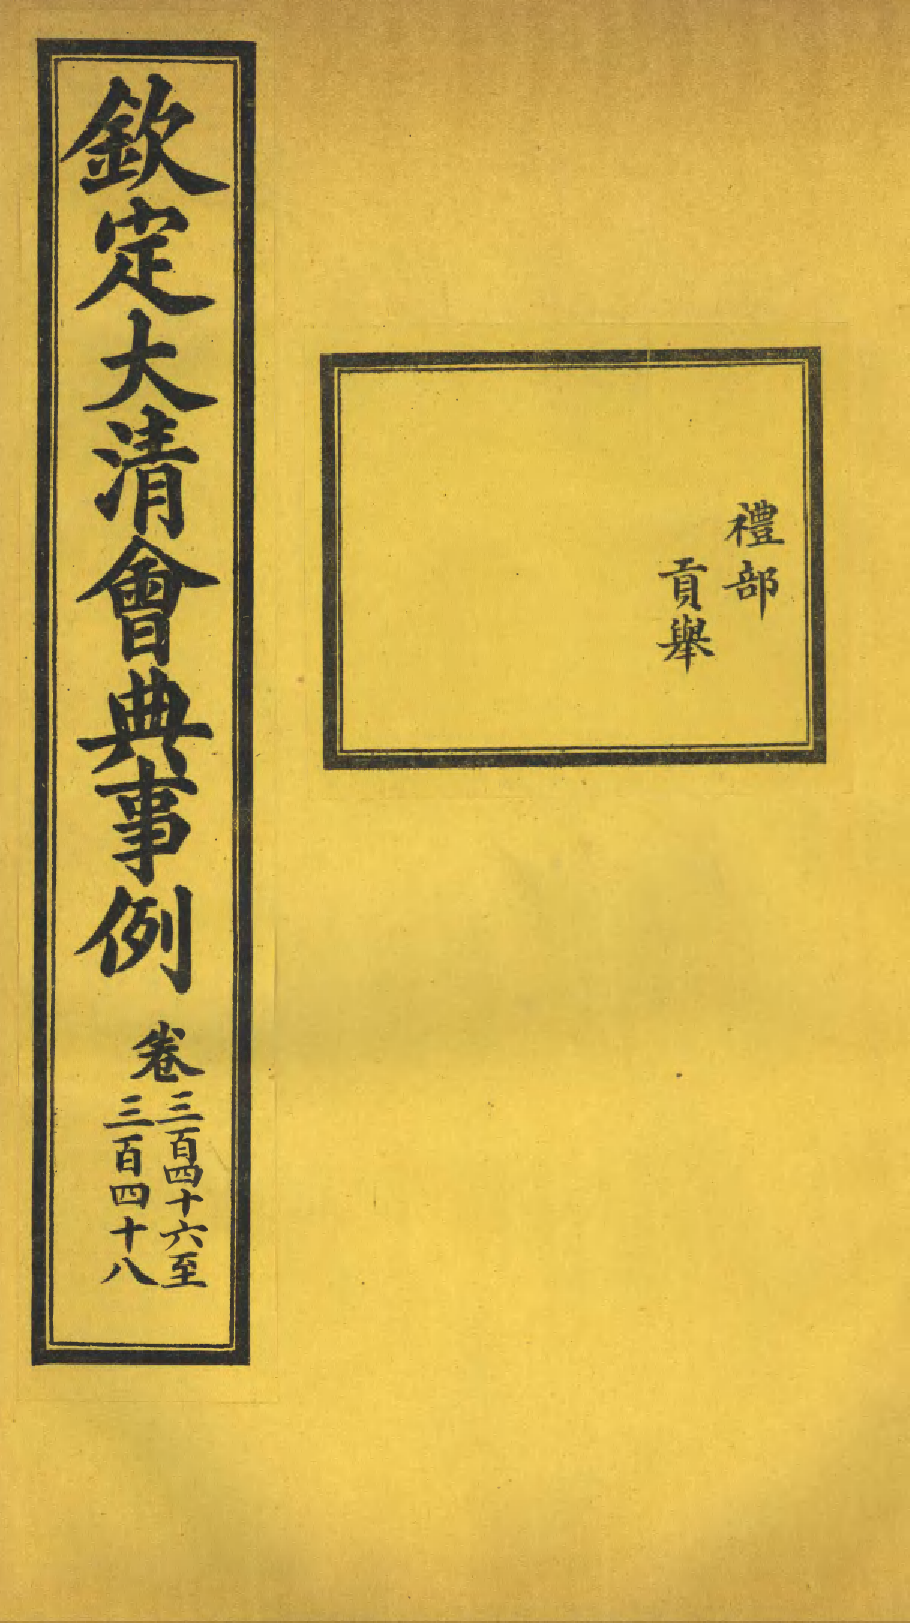 禮部
貢舉
欽定大清會典事例
卷
三百四十六至
三百四十八